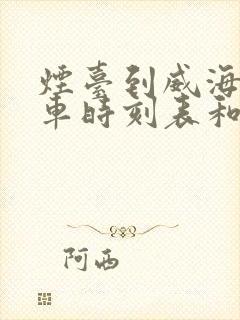 煙臺到威海
車時刻表和
阿西